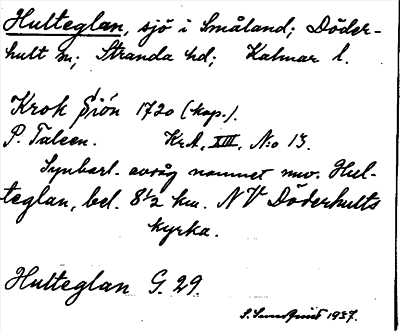 Hulteglan, sjö i Småland; Döder-
hult sn; Stranda hd; Kalmar l.
Krok Siön 1720 (kop.).
P. Taleen. KrA, XIII, No 13.
Synbarl. avråg namnet nuv. Hul-
teglan, bel. 8½ km. NV Döderhults
kyrka.
Hulteglan G. 29.
S. Sundquist 1937.